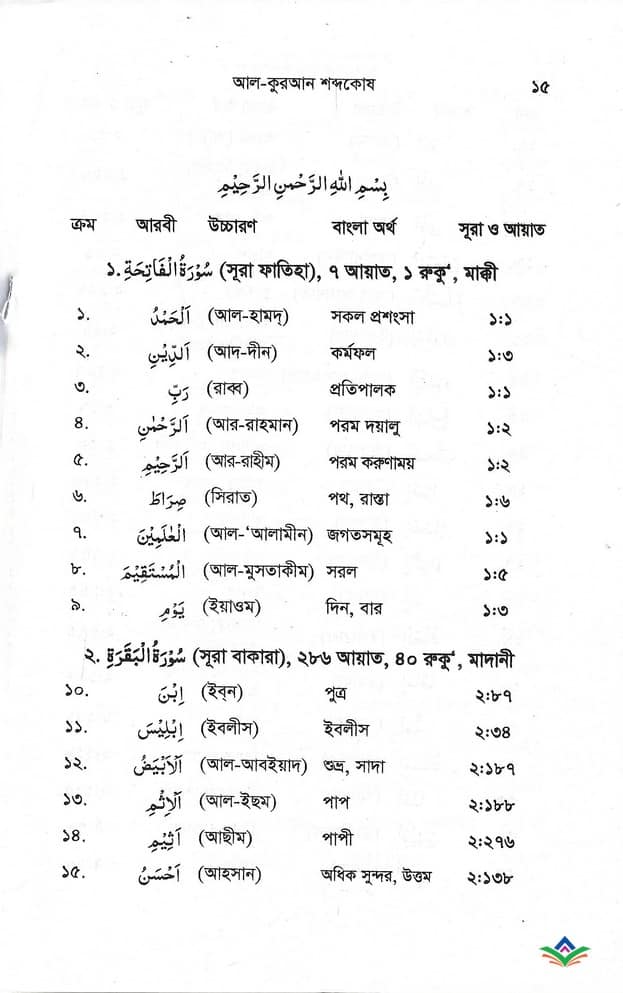 আল-কুরআন শব্দকোষ ১৫
بِسْمِ اللهِ الرَّحْمٰنِ الرَّحِيْمِ
ক্রম আরবী উচ্চারণ বাংলা অর্থ সূরা ও আয়াত
১. سُوْرَةُ الْفَاتِحَةِ (সূরা ফাতিহা), ৭ আয়াত, ১ রুকু‘, মাক্কী
১. اَلْحَمْدُ (আল-হামদ্) সকল প্রশংসা ১:১
২. اَلدِّيْنِ (আদ-দীন) কর্মফল ১:৩
৩. رَبِّ (রাব্ব) প্রতিপালক ১:১
৪. اَلرَّحْمٰنِ (আর-রাহমান) পরম দয়ালু ১:২
৫. اَلرَّحِيْمِ (আর-রাহীম) পরম করুণাময় ১:২
৬. صِرَاطَ (সিরাত) পথ, রাস্তা ১:৬
৭. الْعٰلَمِيْنَ (আল-‘আলামীন) জগতসমূহ ১:১
৮. الْمُسْتَقِيْمَ (আল-মুসতাকীম) সরল ১:৫
৯. يَوْمِ (ইয়াওম) দিন, বার ১:৩
২. سُوْرَةُ الْبَقَرَةِ (সূরা বাকারা), ২৮৬ আয়াত, ৪০ রুকু‘, মাদানী
১০. اِبْنَ (ইব্‌ন) পুত্র ২:৮৭
১১. اِبْلِيْسَ (ইবলীস) ইবলীস ২:৩৪
১২. اَلْاَبْيَضُ (আল-আবইয়াদ) শুভ্র, সাদা ২:১৮৭
১৩. اَلْاِثْمِ (আল-ইছম) পাপ ২:১৮৮
১৪. اَثِيْمِ (আছীম) পাপী ২:২৭৬
১৫. اَحْسَنُ (আহসান) অধিক সুন্দর, উত্তম ২:১৩৮